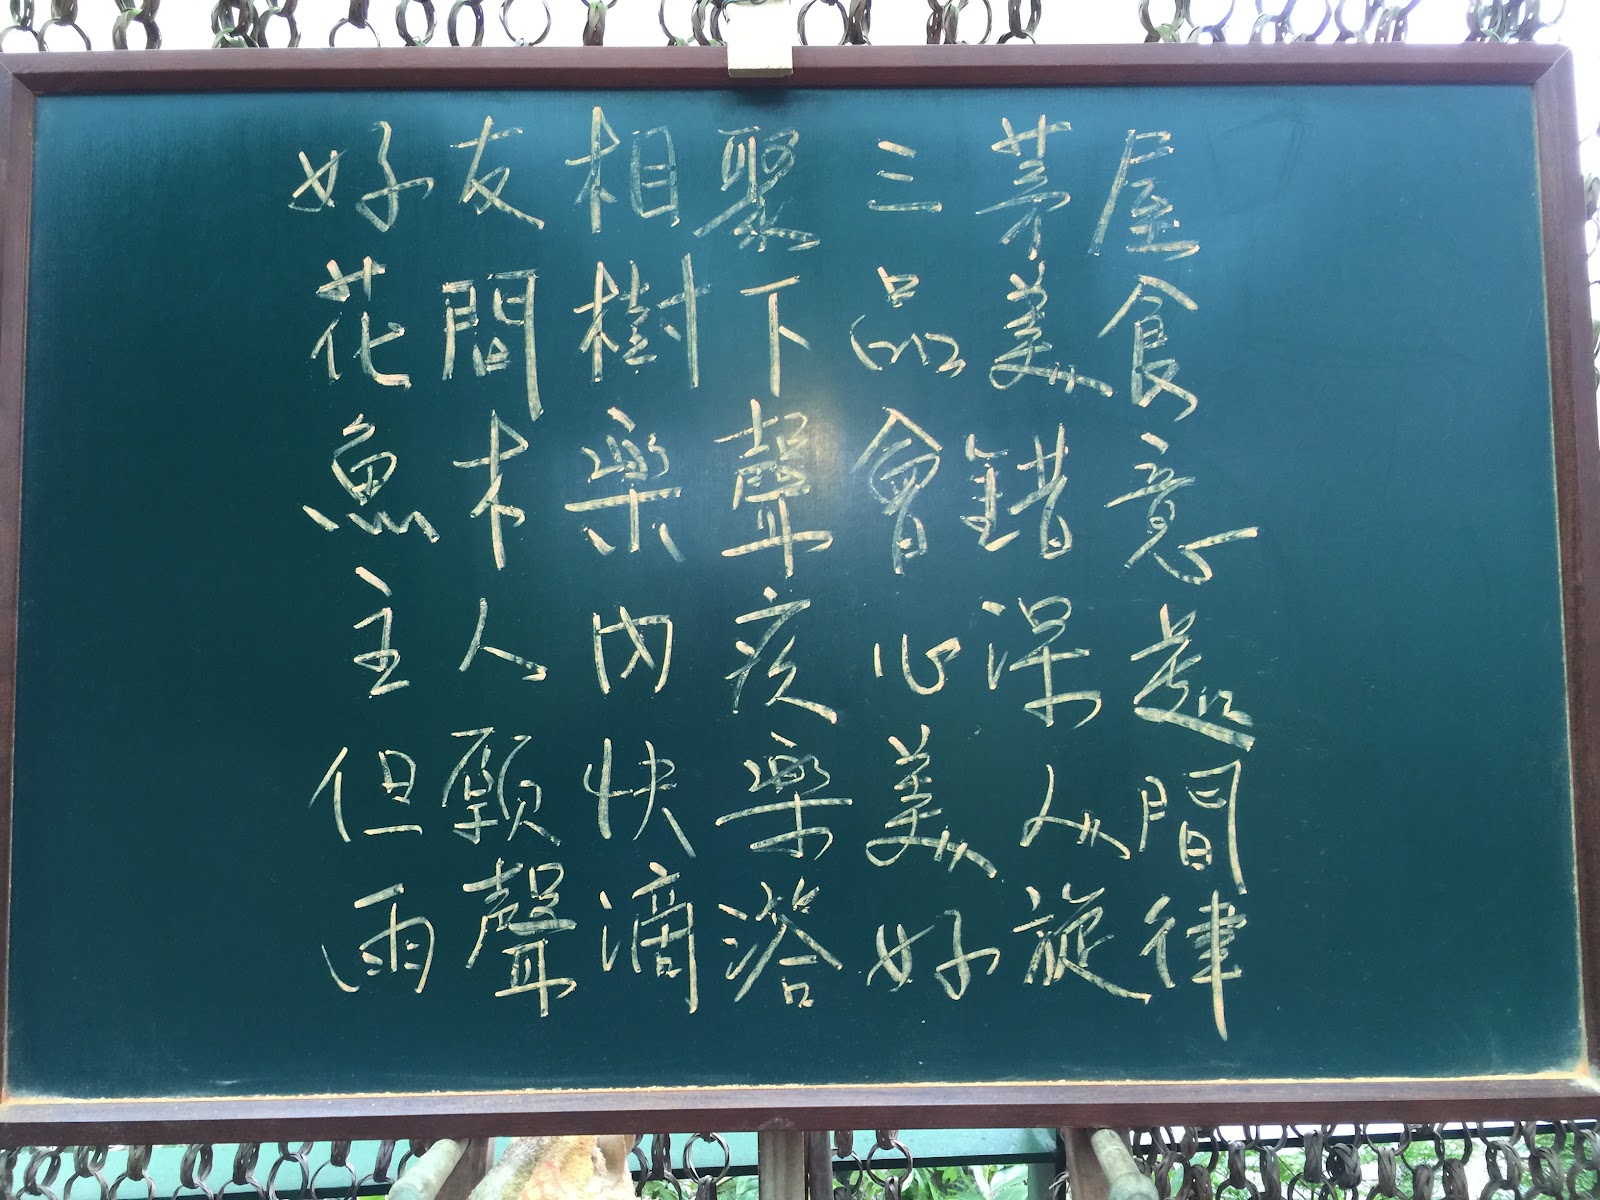 好友相聚三茅屋
花間樹下品美食
魚木樂聲會錯意
主人內疚心深
但願快樂美人間
雨聲滴溚好旋律